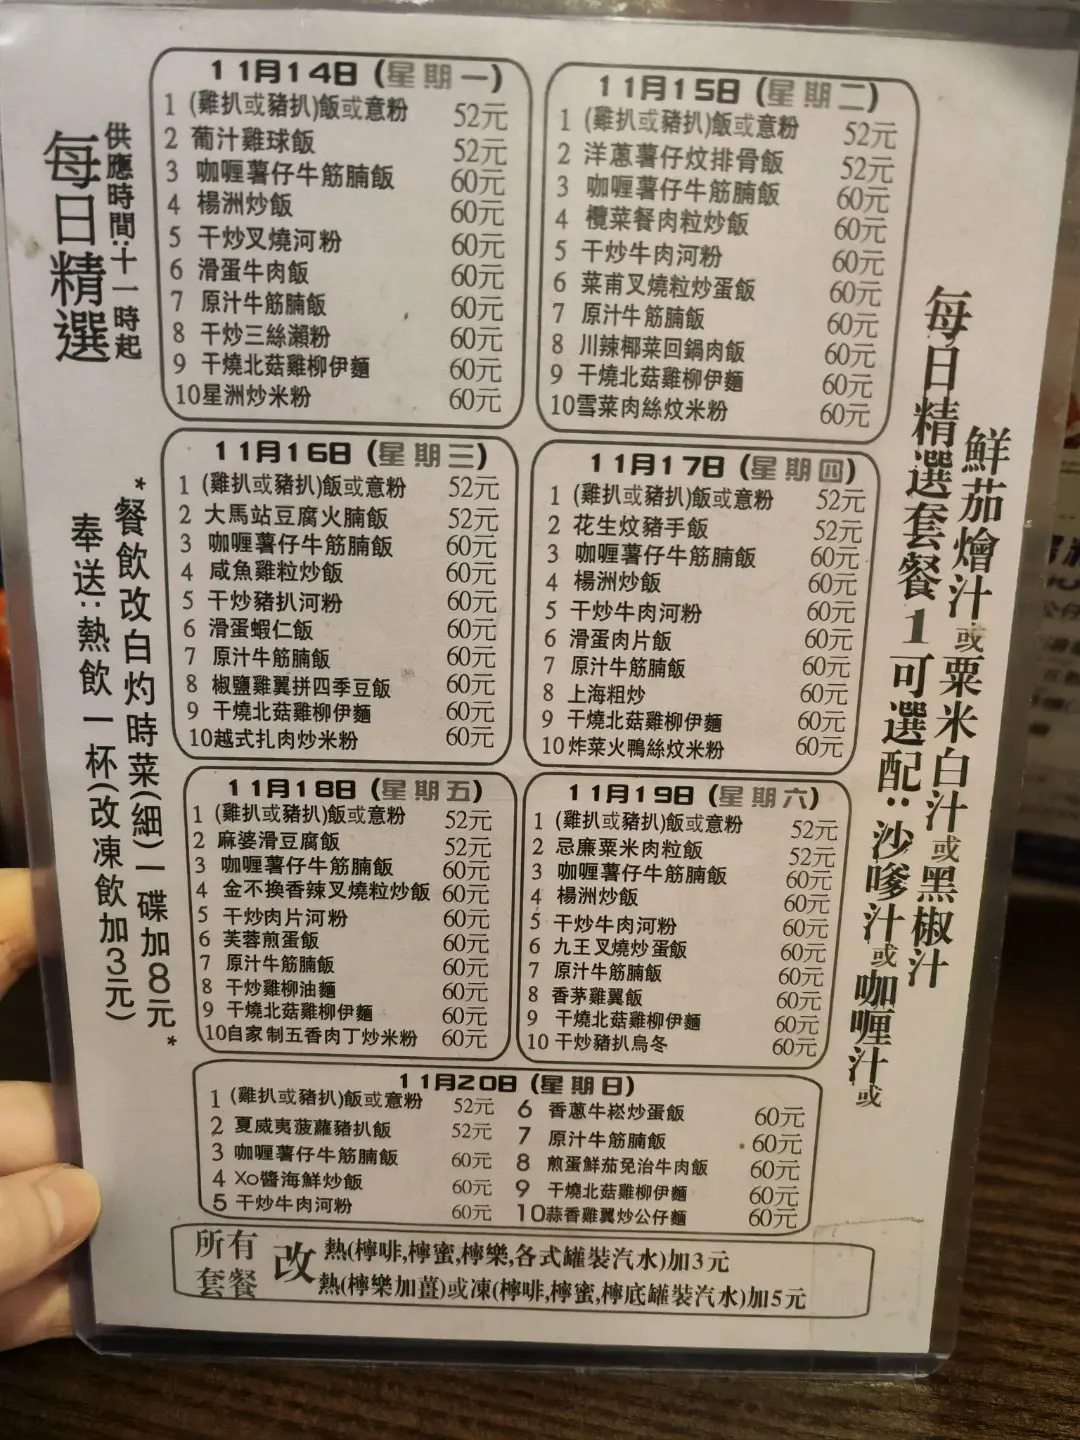 每日精選
供應時間:十一時起
11月14日(星期一)
1 (雞扒或豬扒)飯或意粉 52元
2 葡汁雞球飯 52元
3 咖喱薯仔牛筋腩飯 60元
4 楊洲炒飯 60元
5 干炒叉燒河粉 60元
6 滑蛋牛肉飯 60元
7 原汁牛筋腩飯 60元
8 干炒三絲瀨粉 60元
9 干燒北菇雞柳伊麵 60元
10星洲炒米粉 60元
11月15日(星期二)
1 (雞扒或豬扒)飯或意粉 52元
2 洋蔥薯仔炆排骨飯 52元
3 咖喱薯仔牛筋腩飯 60元
4 欖菜餐肉粒炒飯 60元
5 干炒牛肉河粉 60元
6 菜甫叉燒粒炒蛋飯 60元
7 原汁牛筋腩飯 60元
8 川辣椰菜回鍋肉飯 60元
9 干燒北菇雞柳伊麵 60元
10雪菜肉絲炆米粉 60元
11月16日(星期三)
1 (雞扒或豬扒)飯或意粉 52元
2 大馬站豆腐火腩飯 52元
3 咖喱薯仔牛筋腩飯 60元
4 咸魚雞粒炒飯 60元
5 干炒豬扒河粉 60元
6 滑蛋蝦仁飯 60元
7 原汁牛筋腩飯 60元
8 椒鹽雞翼拼四季豆飯 60元
9 干燒北菇雞柳伊麵 60元
10越式扎肉炒米粉 60元
11月17日(星期四)
1 (雞扒或豬扒)飯或意粉 52元
2 花生炆豬手飯 52元
3 咖喱薯仔牛筋腩飯 60元
4 楊洲炒飯 60元
5 干炒牛肉河粉 60元
6 滑蛋肉片飯 60元
7 原汁牛筋腩飯 60元
8 上海粗炒 60元
9 干燒北菇雞柳伊麵 60元
10 炸菜火鴨絲炆米粉 60元
11月18日(星期五)
1 (雞扒或豬扒)飯或意粉 52元
2 麻婆滑豆腐飯 52元
3 咖喱薯仔牛筋腩飯 60元
4 金不換香辣叉燒粒炒飯 60元
5 干炒肉片河粉 60元
6 芙蓉煎蛋飯 60元
7 原汁牛筋腩飯 60元
8 干炒雞柳油麵 60元
9 干燒北菇雞柳伊麵 60元
10自家制五香肉丁炒米粉 60元
11月19日(星期六)
1 (雞扒或豬扒)飯或意粉 52元
2 忌廉粟米肉粒飯 52元
3 咖喱薯仔牛筋腩飯 60元
4 楊洲炒飯 60元
5 干炒牛肉河粉 60元
6 九王叉燒炒蛋飯 60元
7 原汁牛筋腩飯 60元
8 香茅雞翼飯 60元
9 干燒北菇雞柳伊麵 60元
10 干炒豬扒烏冬 60元
11月20日(星期日)
1 (雞扒或豬扒)飯或意粉 52元
2 夏威夷菠蘿豬扒飯 52元
3 咖喱薯仔牛筋腩飯 60元
4 XO醬海鮮炒飯 60元
5 干炒牛肉河粉 60元
6 香蔥牛崧炒蛋飯 60元
7 原汁牛筋腩飯 60元
8 煎蛋鮮茄免治牛肉飯 60元
9 干燒北菇雞柳伊麵 60元
10蒜香雞翼炒公仔麵 60元
每日精選套餐1可選配:沙嗲汁或咖喱汁或
鮮茄燴汁或粟米白汁或黑椒汁
*餐飲改白灼時菜(細)一碟加8元*
奉送:熱飲一杯(改凍飲加3元)
所有套餐 改
熱(檸啡,檸蜜,檸樂,各式罐裝汽水)加3元
熱(檸樂加薑)或凍(檸啡,檸蜜,檸底罐裝汽水)加5元